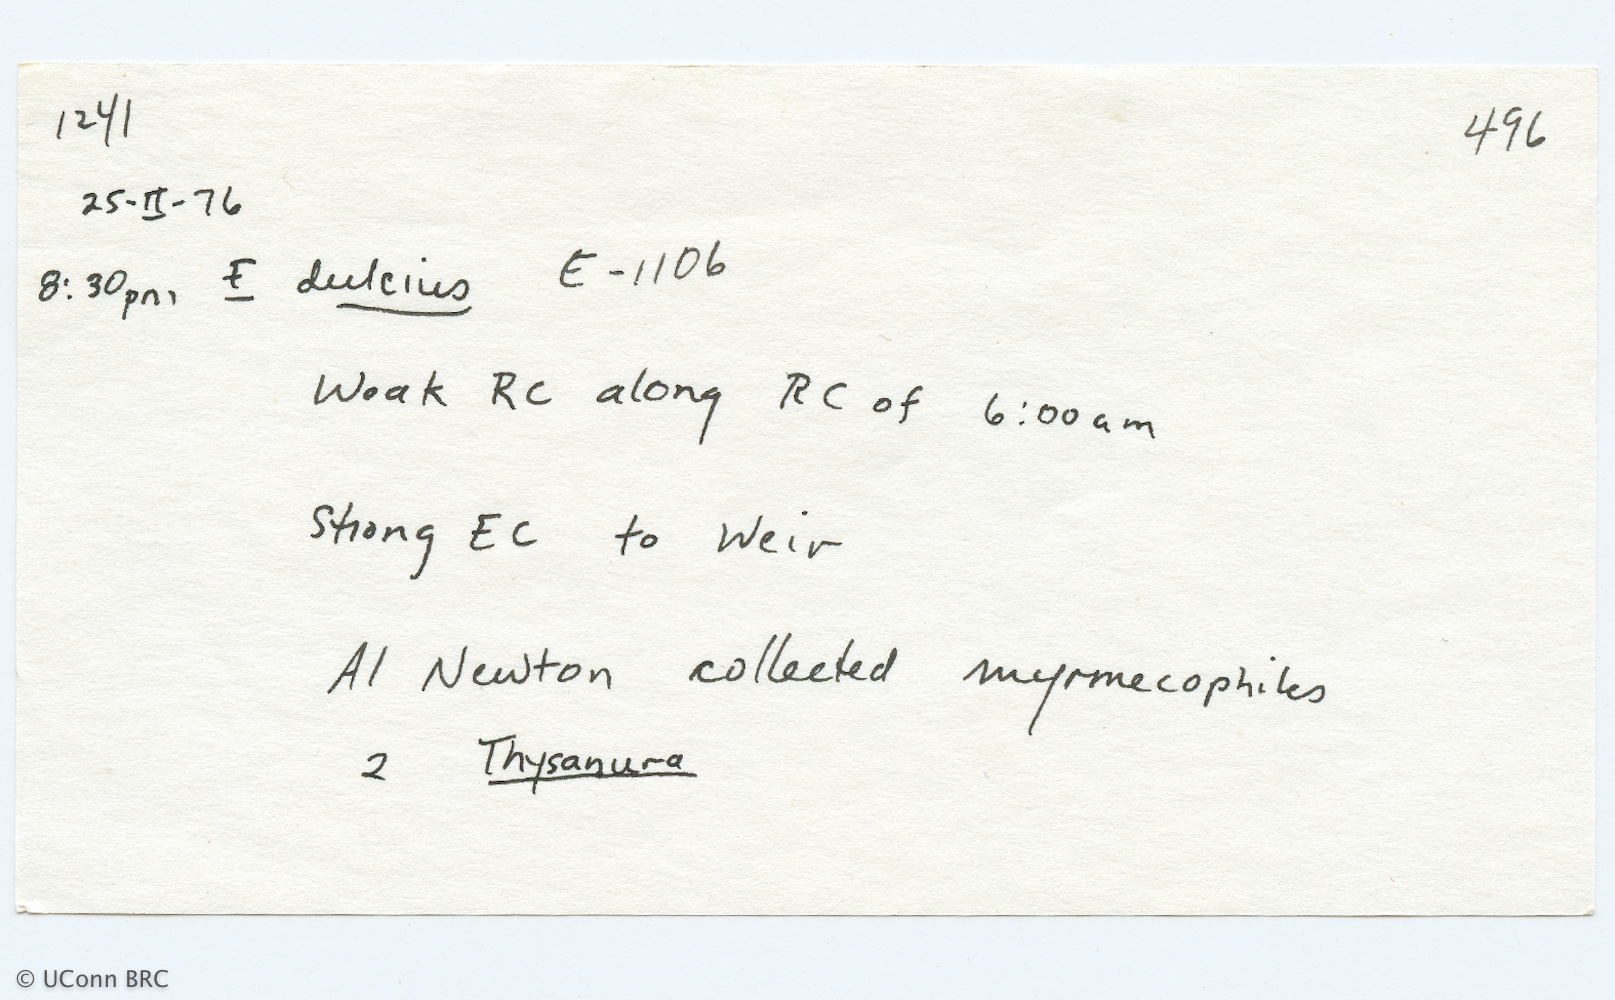 1241 496
25-II-76
8:30pm E dulcius E-1106
Weak RC along RC of 6:00am
Strong EC to Weir
Al Newton collected myrmecophiles
2 Thysanura
© UConn BRC